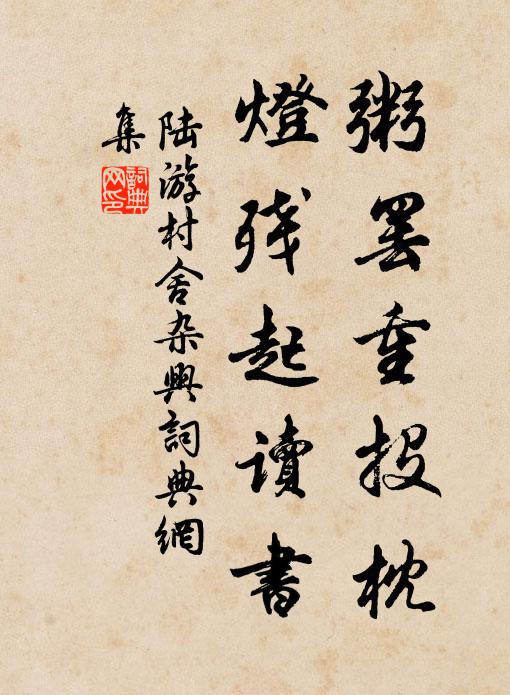 粥罷重投枕
燈殘起讀書
陸游村舍杂興詞典網
集
詞典网印